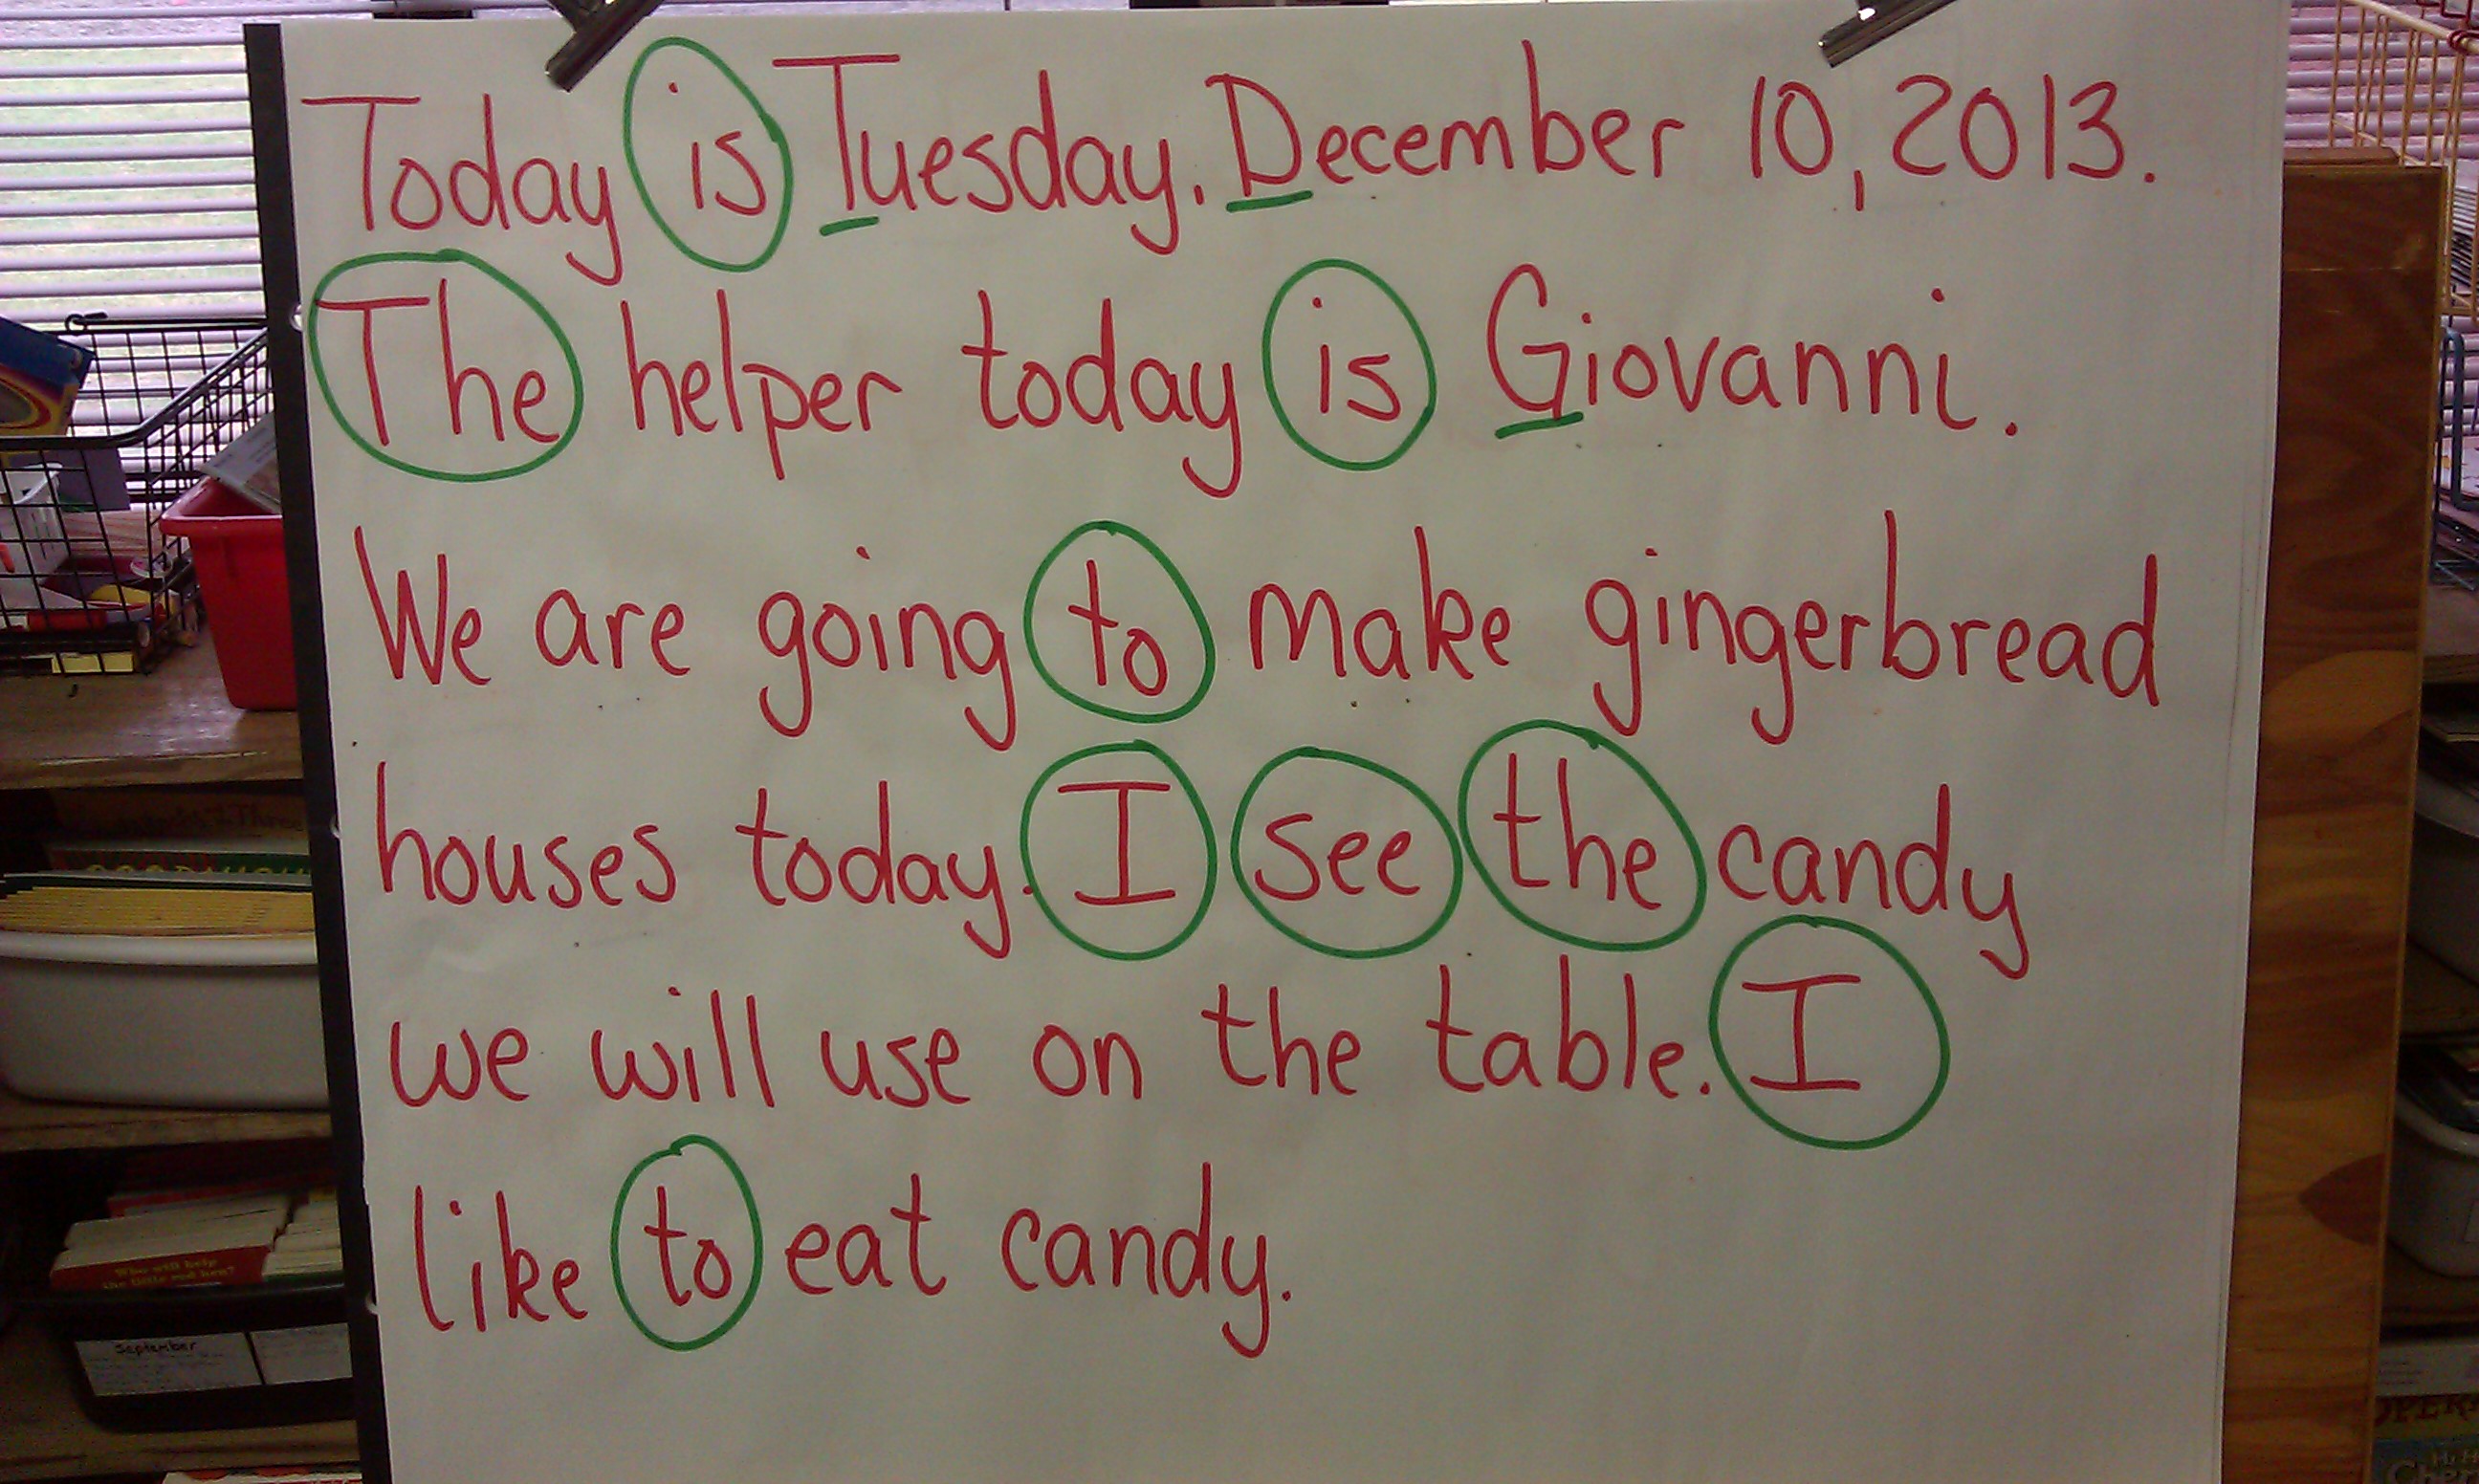 Today is Tuesday. December 10, 2013.
The helper today is Giovanni.
We are going to make gingerbread
houses today. I see the candy
we will use on the table. I
like to eat candy.
Who will help
the little red hen?
September